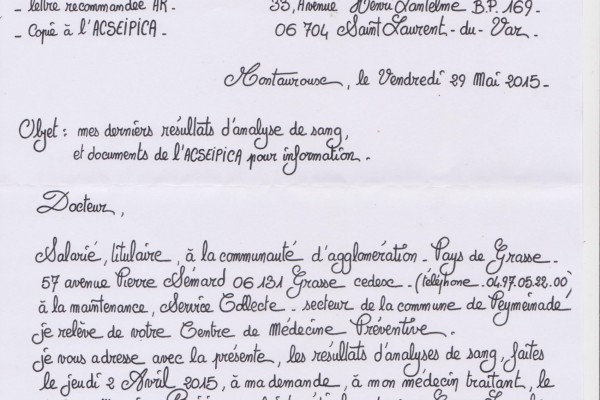 - lettre recommandée AR - 33, Avenue Henri Lantelme B.P. 169 -
- Copie à l'ACSEIPICA - 06 704 Saint Laurent - du - Var -
Montauroux, le Vendredi 29 Mai 2015 -
Objet : mes derniers résultats d'analyse de sang,
et documents de l'ACSEIPICA pour information -
Docteur,
Salarié, titulaire, à la communauté d'agglomération - Pays de Grasse -
57 avenue Pierre Sémard 06 131 Grasse cedex - (téléphone - 04.97.05.22.00)
à la maintenance, Service Collecte - secteur de la commune de Peymeinade
je relève de votre Centre de Médecine Préventive -
je vous adresse avec la présente, les résultats d'analyses de sang, faites
le jeudi 2 Avril 2015, à ma demande, à mon médecin traitant, le